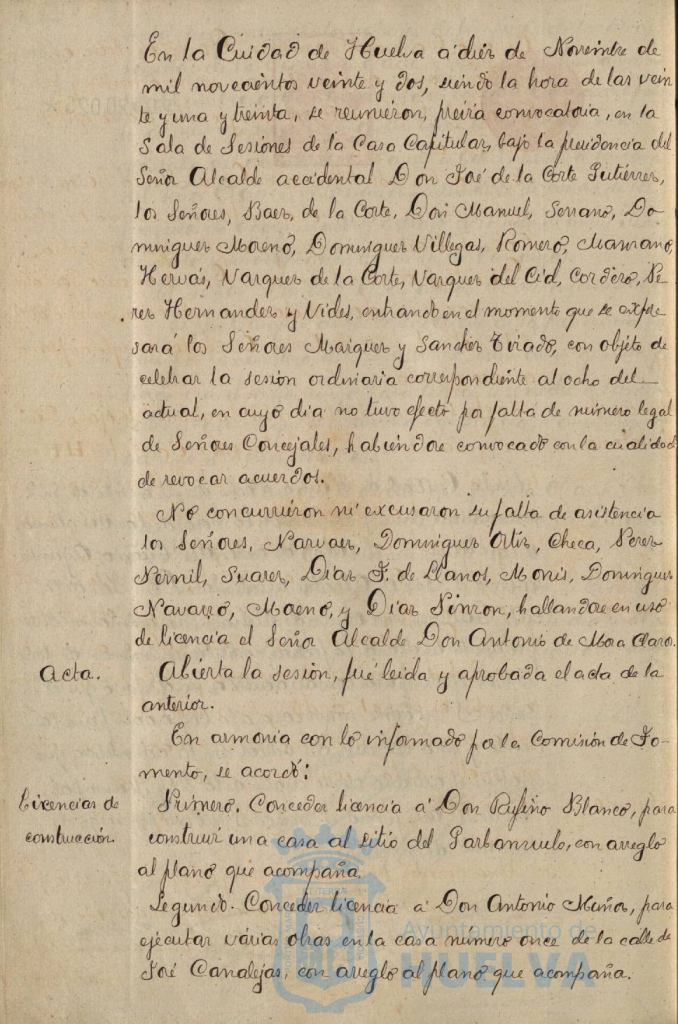 En la Cuidad de Huelva a diez de Noviembre de
mil novecientos veinte y dos, siendo la hora de las vein
te y una y treinta, se reunieron, previa convocatoria, en la
Sala de Sesiones de la Casa Capitular, bajo la presidencia del
Señor Alcalde accidental Don José de la Corte Gutiérrez,
los Señores, Baez, de la Corte, Don Manuel, Serrano, Do-
minguez Moreno, Dominguez Villegas, Romero, Manzano,
Hervás, Vazquez de la Corte, Vazquez del Cid, Cordero, Pe-
rez Hernandez y Vides, entrando en el momento que se expre
sará los Señores Marquez y Sanchez Tirado, con objeto de
celebrar la sesión ordinaria correspondiente al ocho del
actual, en cuyo dia no tuvo efecto por falta de número legal
de Señores Concejales, habiéndose convocado con la cualidad
de revocar acuerdos.
No concurrieron ni excusaron su falta de asistencia
los Señores, Narvaez, Dominguez Ortiz, Checa, Perez
Pernil, Suarez, Diaz F. de Llanos, Monis, Dominguez
Navarro, Moreno, y Diaz Pinzon, hallandose en uso
de licencia el Señor Alcalde Don Antonio de Mora Claros.
Acta. Abierta la sesión, fué leida y aprobada el acta de la
anterior.
En armonia con lo informado por la Comisión de Fo-
mento, se acordó:
Licencias de construcción.
Primero. Conceder licencia á Don Rufino Blanco, para
construir una casa al sitio del Garbanzuelo, con arreglo
al plano que acompaña.
Segundo. Conceder licencia á Don Antonio Muñoz, para
ejecutar várias obras en la casa número once de la calle de
José Canalejas, con arreglo al plano que acompaña.
Ayuntamiento de
HUELVA